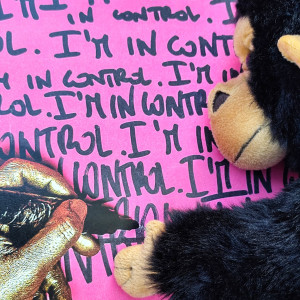 IN CONTROL.
OL. I'M IN CONT
I'M IN CONTROL. I'M IN
OL. I'M IN CONTROL
CONTROL. I'M IN
CONTROL. I'M IN